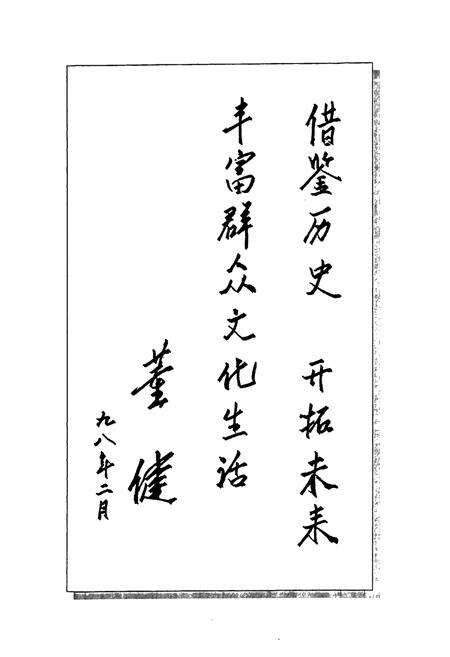 借鉴历史 开拓未来
丰富群众文化生活
董健
九八年二月